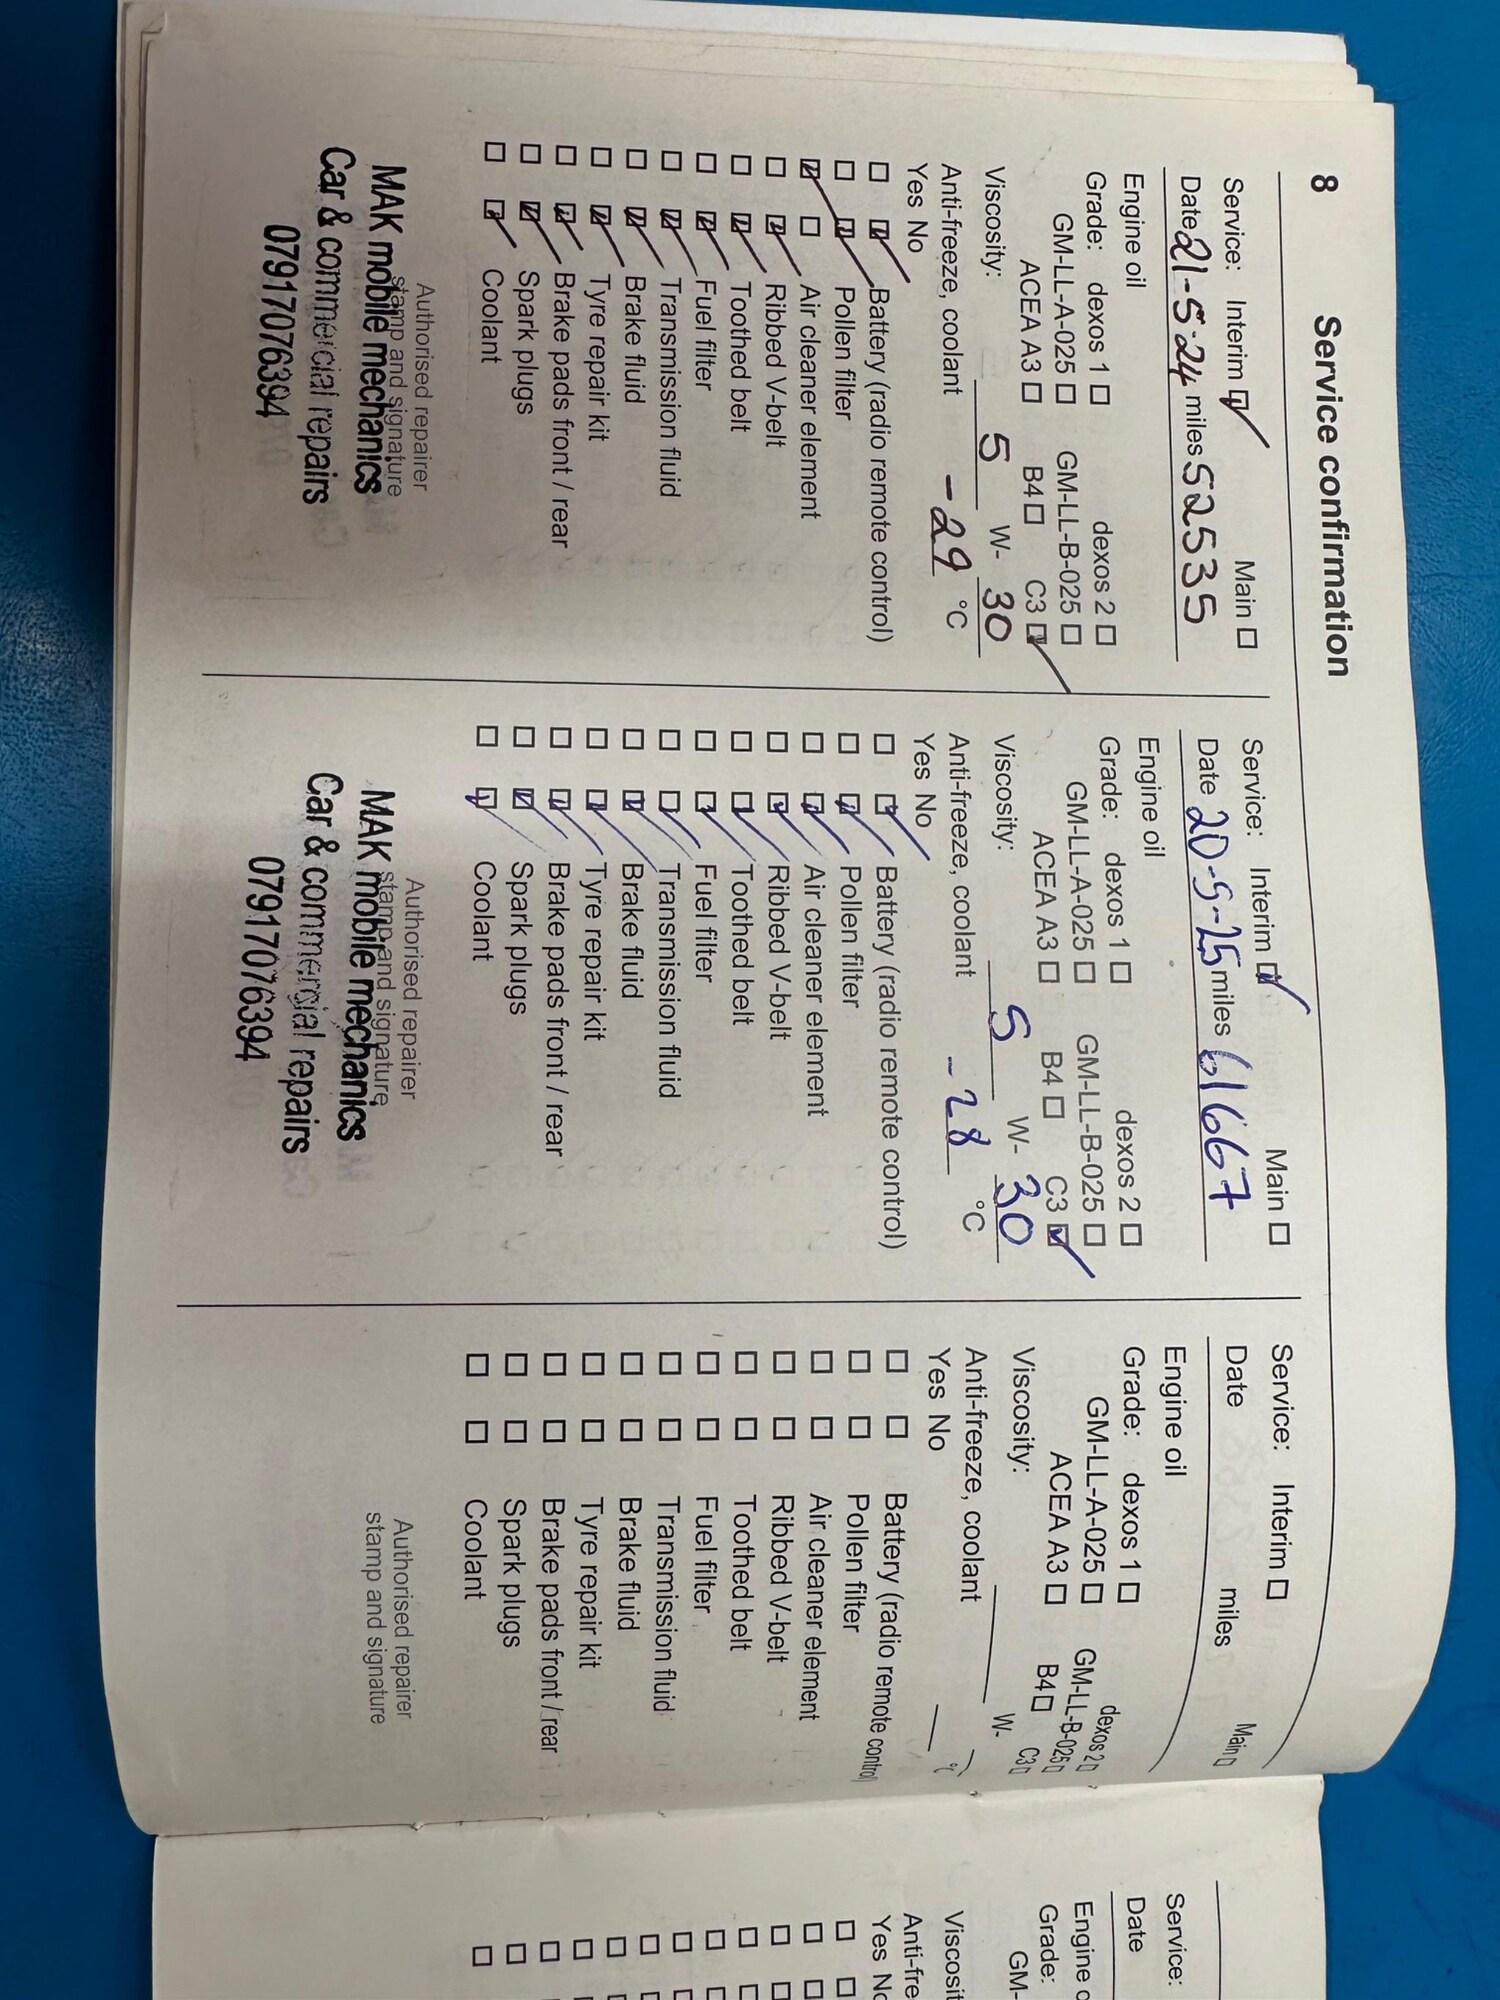 8 Service confirmation
Service: Interim ☑ Main ☐
Date 21-5-24 miles 52535
Engine oil
Grade: dexos 1 ☐ dexos 2 ☐
GM-LL-A-025 ☐ GM-LL-B-025 ☐
ACEA A3 ☐ B4 ☐ C3 ☑
Viscosity: 5 W- 30
Anti-freeze, coolant -29 °C
Yes No
☐ ☑ Battery (radio remote control)
☐ ☑ Pollen filter
☑ ☐ Air cleaner element
☐ ☑ Ribbed V-belt
☐ ☑ Toothed belt
☐ ☑ Fuel filter
☐ ☑ Transmission fluid
☐ ☑ Brake fluid
☐ ☑ Tyre repair kit
☐ ☑ Brake pads front / rear
☐ ☑ Spark plugs
☐ ☑ Coolant
Authorised repairer
stamp and signature
MAK mobile mechanics
Car & commercial repairs
07917076394
Service: Interim ☑ Main ☐
Date 20-5-25 miles 61667
Engine oil
Grade: dexos 1 ☐ dexos 2 ☐
GM-LL-A-025 ☐ GM-LL-B-025 ☐
ACEA A3 ☐ B4 ☐ C3 ☑
Viscosity: 5 W- 30
Anti-freeze, coolant -28 °C
Yes No
☐ ☑ Battery (radio remote control)
☐ ☑ Pollen filter
☐ ☑ Air cleaner element
☐ ☑ Ribbed V-belt
☐ ☑ Toothed belt
☐ ☑ Fuel filter
☐ ☑ Transmission fluid
☐ ☑ Brake fluid
☐ ☑ Tyre repair kit
☐ ☑ Brake pads front / rear
☐ ☑ Spark plugs
☐ ☑ Coolant
Authorised repairer
stamp and signature
MAK mobile mechanics
Car & commercial repairs
07917076394
Service: Interim ☐ Main ☐
Date miles
Engine oil
Grade: dexos 1 ☐ dexos 2 ☐
GM-LL-A-025 ☐ GM-LL-B-025 ☐
ACEA A3 ☐ B4 ☐ C3 ☐
Viscosity: W-
Anti-freeze, coolant °C
Yes No
☐ ☐ Battery (radio remote control)
☐ ☐ Pollen filter
☐ ☐ Air cleaner element
☐ ☐ Ribbed V-belt
☐ ☐ Toothed belt
☐ ☐ Fuel filter
☐ ☐ Transmission fluid
☐ ☐ Brake fluid
☐ ☐ Tyre repair kit
☐ ☐ Brake pads front / rear
☐ ☐ Spark plugs
☐ ☐ Coolant
Authorised repairer
stamp and signature
Service:
Date
Engine o
Grade:
GM-
Viscosit
Anti-fre
Yes No